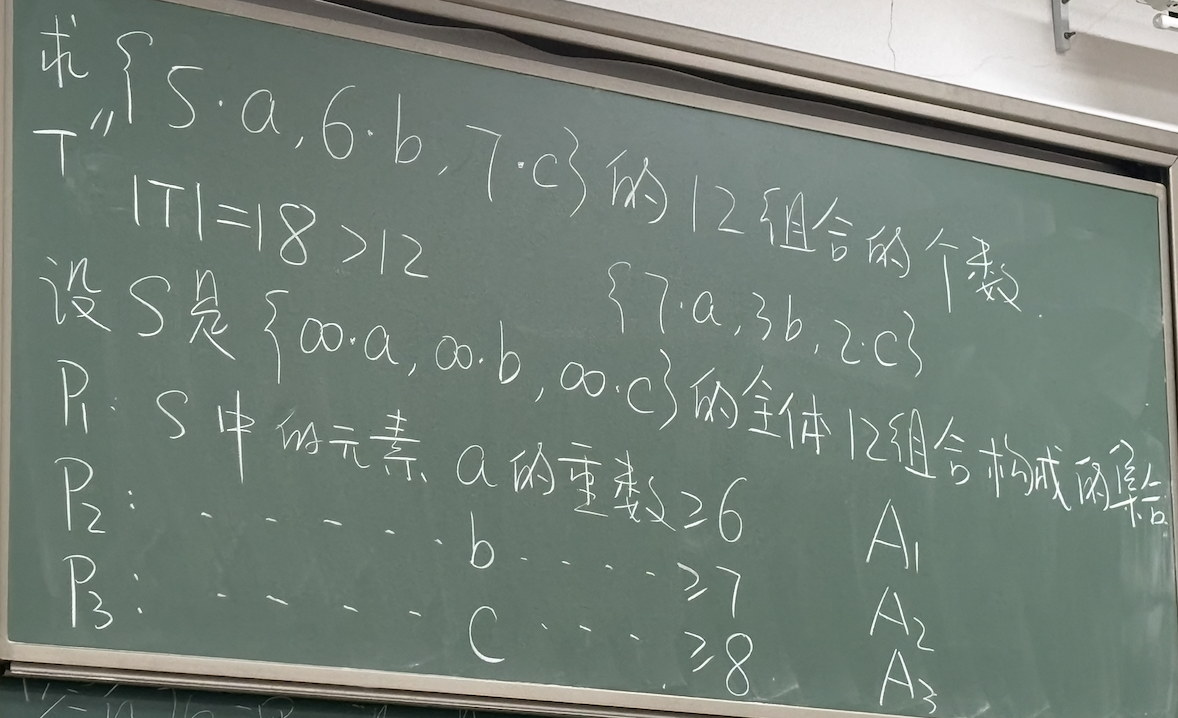 求{5·a,6·b,7·c}的12组合的个数.
T"
|T|=18>12
{7·a,3b,2·c}
设S是{∞·a,∞·b,∞·c}的全体12组合构成的集合
P₁: S中的元素a的重数≥6 A₁
P₂: ·----b·----≥7 A₂
P₃: ----c·---≥8 A₃